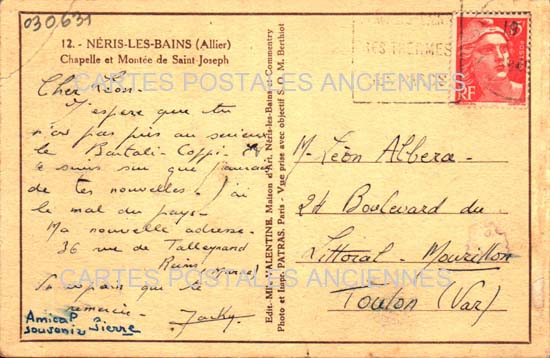 030631
12. - NÉRIS-LES-BAINS (Allier)
Chapelle et Montée de Saint-Joseph
Cher Léon.
J'espère que tu
n'as pas pris au serieux
le Bartali-Coppi.
Je suis sur que
de tes nouvelles. J'ai
le mal du pays.
Ma nouvelle adresse.
36 rue de Talleyrand
Reims Marne
remercie. Jacky
Amical
souvenir Pierre
Edit. MENVALENTINE, Maison d'Art, Néris-les-Bains et Commentry
Photo et Impr. PATRAS, Paris - Vue prise avec objectif S. O. M. Berthiot
SES THERMES
RF
M. Léon Albera
24 Boulevard du
Littoral - Mourillon
Toulon (Var)
CARTES POSTALES ANCIENNES
CARTES POSTALES ANCIENNES